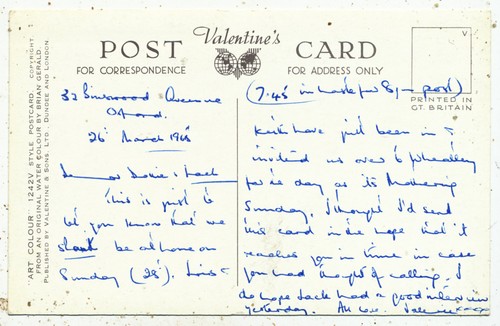 "ART COLOUR" 1242V STYLE POSTCARD. COPYRIGHT
FROM AN ORIGINAL WATER COLOUR BY BRIAN GERALD.
PUBLISHED BY VALENTINE & SONS, LTD. DUNDEE AND LONDON
Valentine's
POST CARD
FOR CORRESPONDENCE FOR ADDRESS ONLY
V
PRINTED IN
GT. BRITAIN
Avenue
26 March
& Jack
This is just to
let you know that we
be at home on
Sunday (28).
(7.45 in post)
have just been in &
invited us over to Wheatley
for day as its Mothering
Sunday. I thought I'd send
this card in the hope that it
reaches you in time in case
you had thought of calling. I
do hope Jack had a good interview
yesterday. All love. Valerie